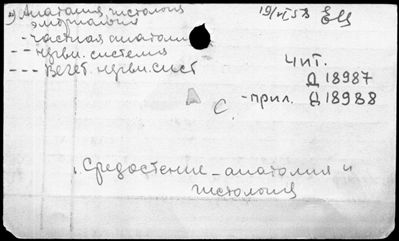 Анатомия, гистология
эмбриология
19/VI 53
- Частная анатомия
-- нервн. система
--- Вегет. нервн. сист
Чит.
Д 18987
- прил. Д 18988
С.
Средостение - анатомия и
гистология